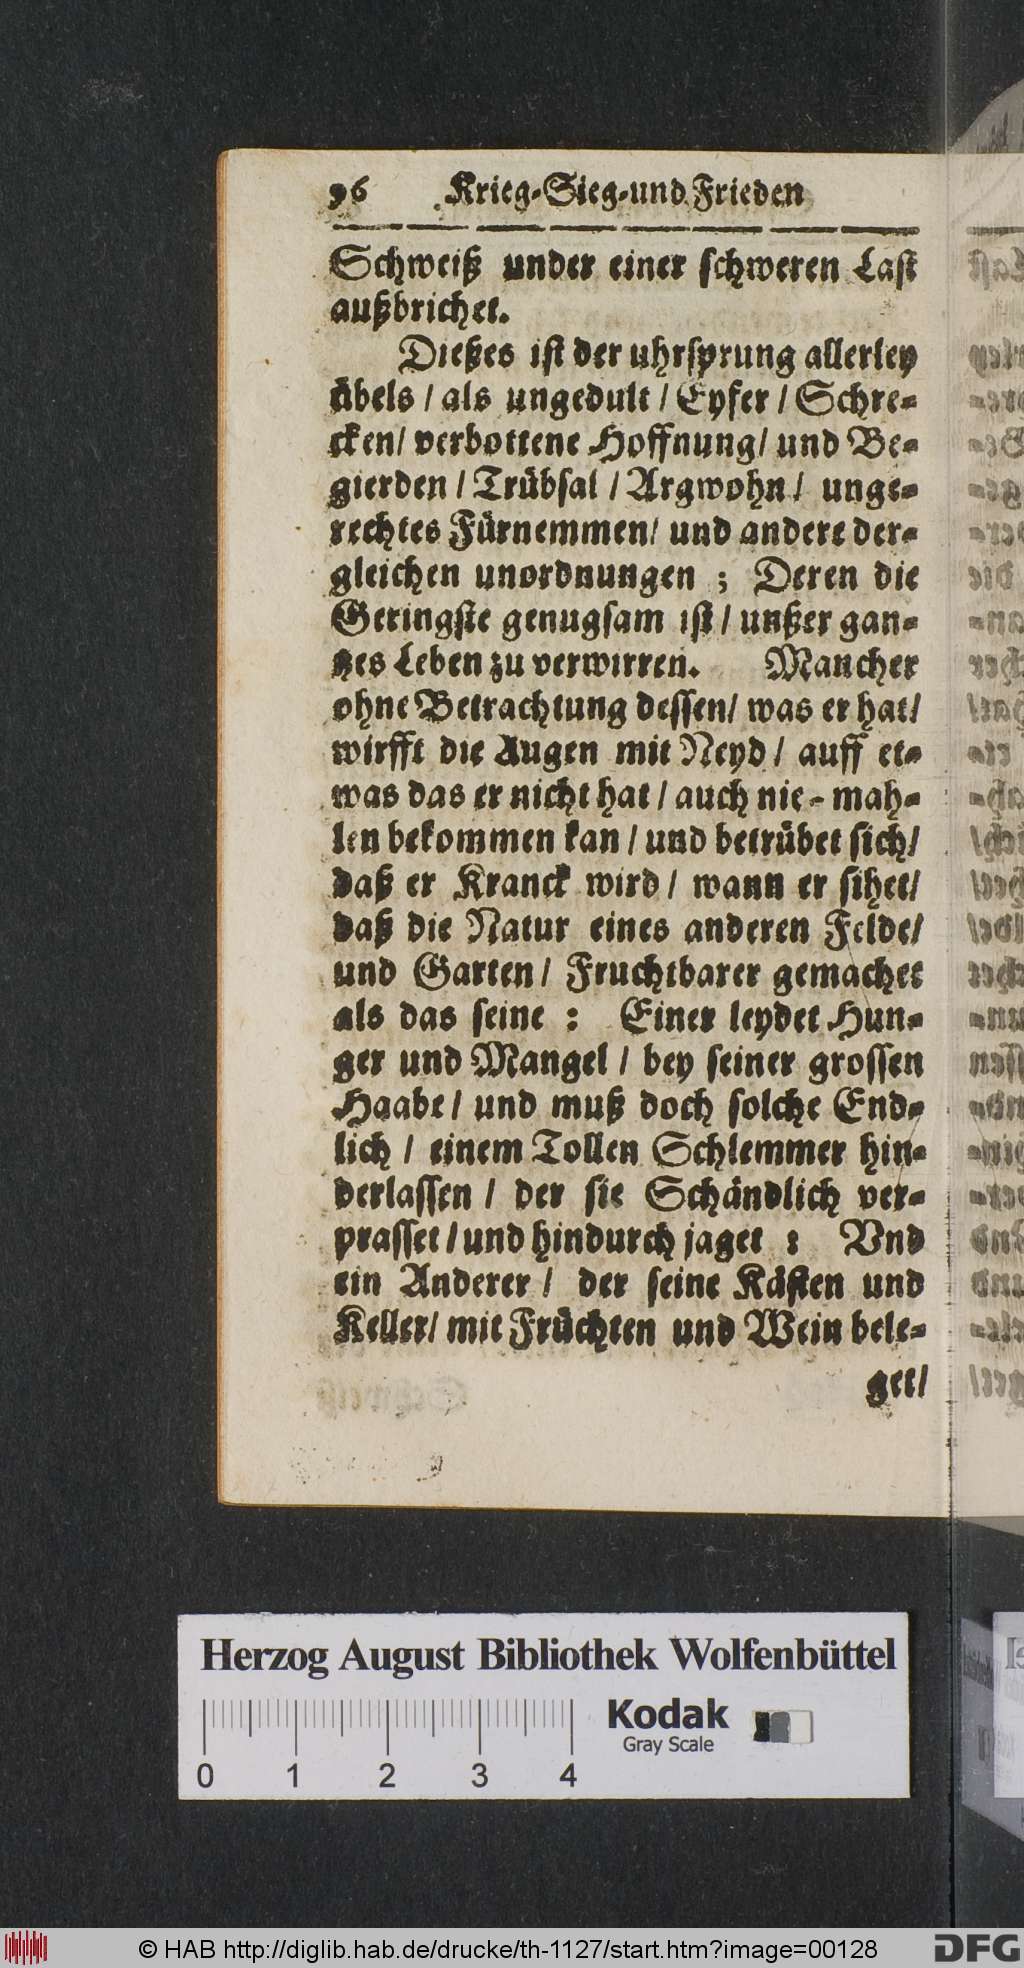 96 Krieg-Sieg-und Frieden
Schweiß under einer schweren Last
außbrichet.
Dießes ist der uhrsprung allerley
übels / als ungedult / Eyfer / Schre-
cken / verbottene Hoffnung / und Be-
gierden / Trübsal / Argwohn / unge-
rechtes Fürnemmen / und andere der-
gleichen unordnungen ; Deren die
Geringste genugsam ist / unßer gan-
tzes Leben zu verwirren. Mancher
ohne Betrachtung dessen / was er hat /
wirfft die Augen mit Neyd / auff et-
was das er nicht hat / auch nie-mah-
len bekommen kan / und betrübet sich /
daß er Kranck wird / wann er sihet /
daß die Natur eines anderen Felde /
und Garten / Fruchtbarer gemachet
als das seine : Einer leydet Hun-
ger und Mangel / bey seiner grossen
Haabe / und muß doch solche End-
lich / einem Tollen Schlemmer hin-
derlassen / der sie Schändlich ver-
prasset / und hindurch jaget : Vnd
ein Anderer / der seine Kästen und
Keller / mit Früchten und Wein bele-
get /
Herzog August Bibliothek Wolfenbüttel
Kodak
Gray Scale
0 1 2 3 4
© HAB http://diglib.hab.de/drucke/th-1127/start.htm?image=00128
DFG